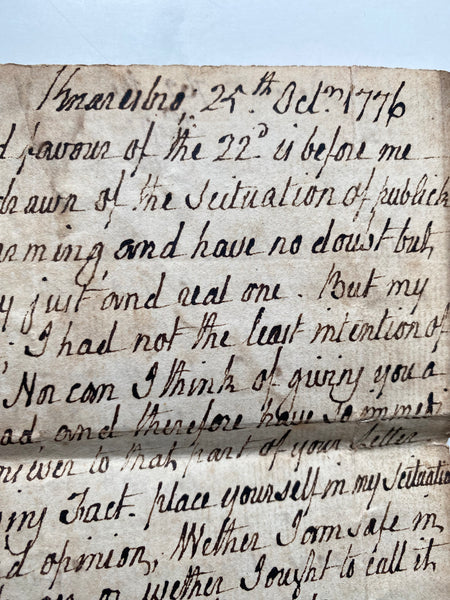 Knaresbro; 25.th Octr. 1776
d favour of the 22d is before me
drawn of the scituation of publick
arming, and have no doubt but,
y just, and real one. But my
I had not the least intention of
Nor can I think of giving you a
ad and therefore have so immedi
answer to that part of your Letter.
ing Fact. place yourself in my scituation
d opinion, Wether I am safe in
or wether I ought to call it